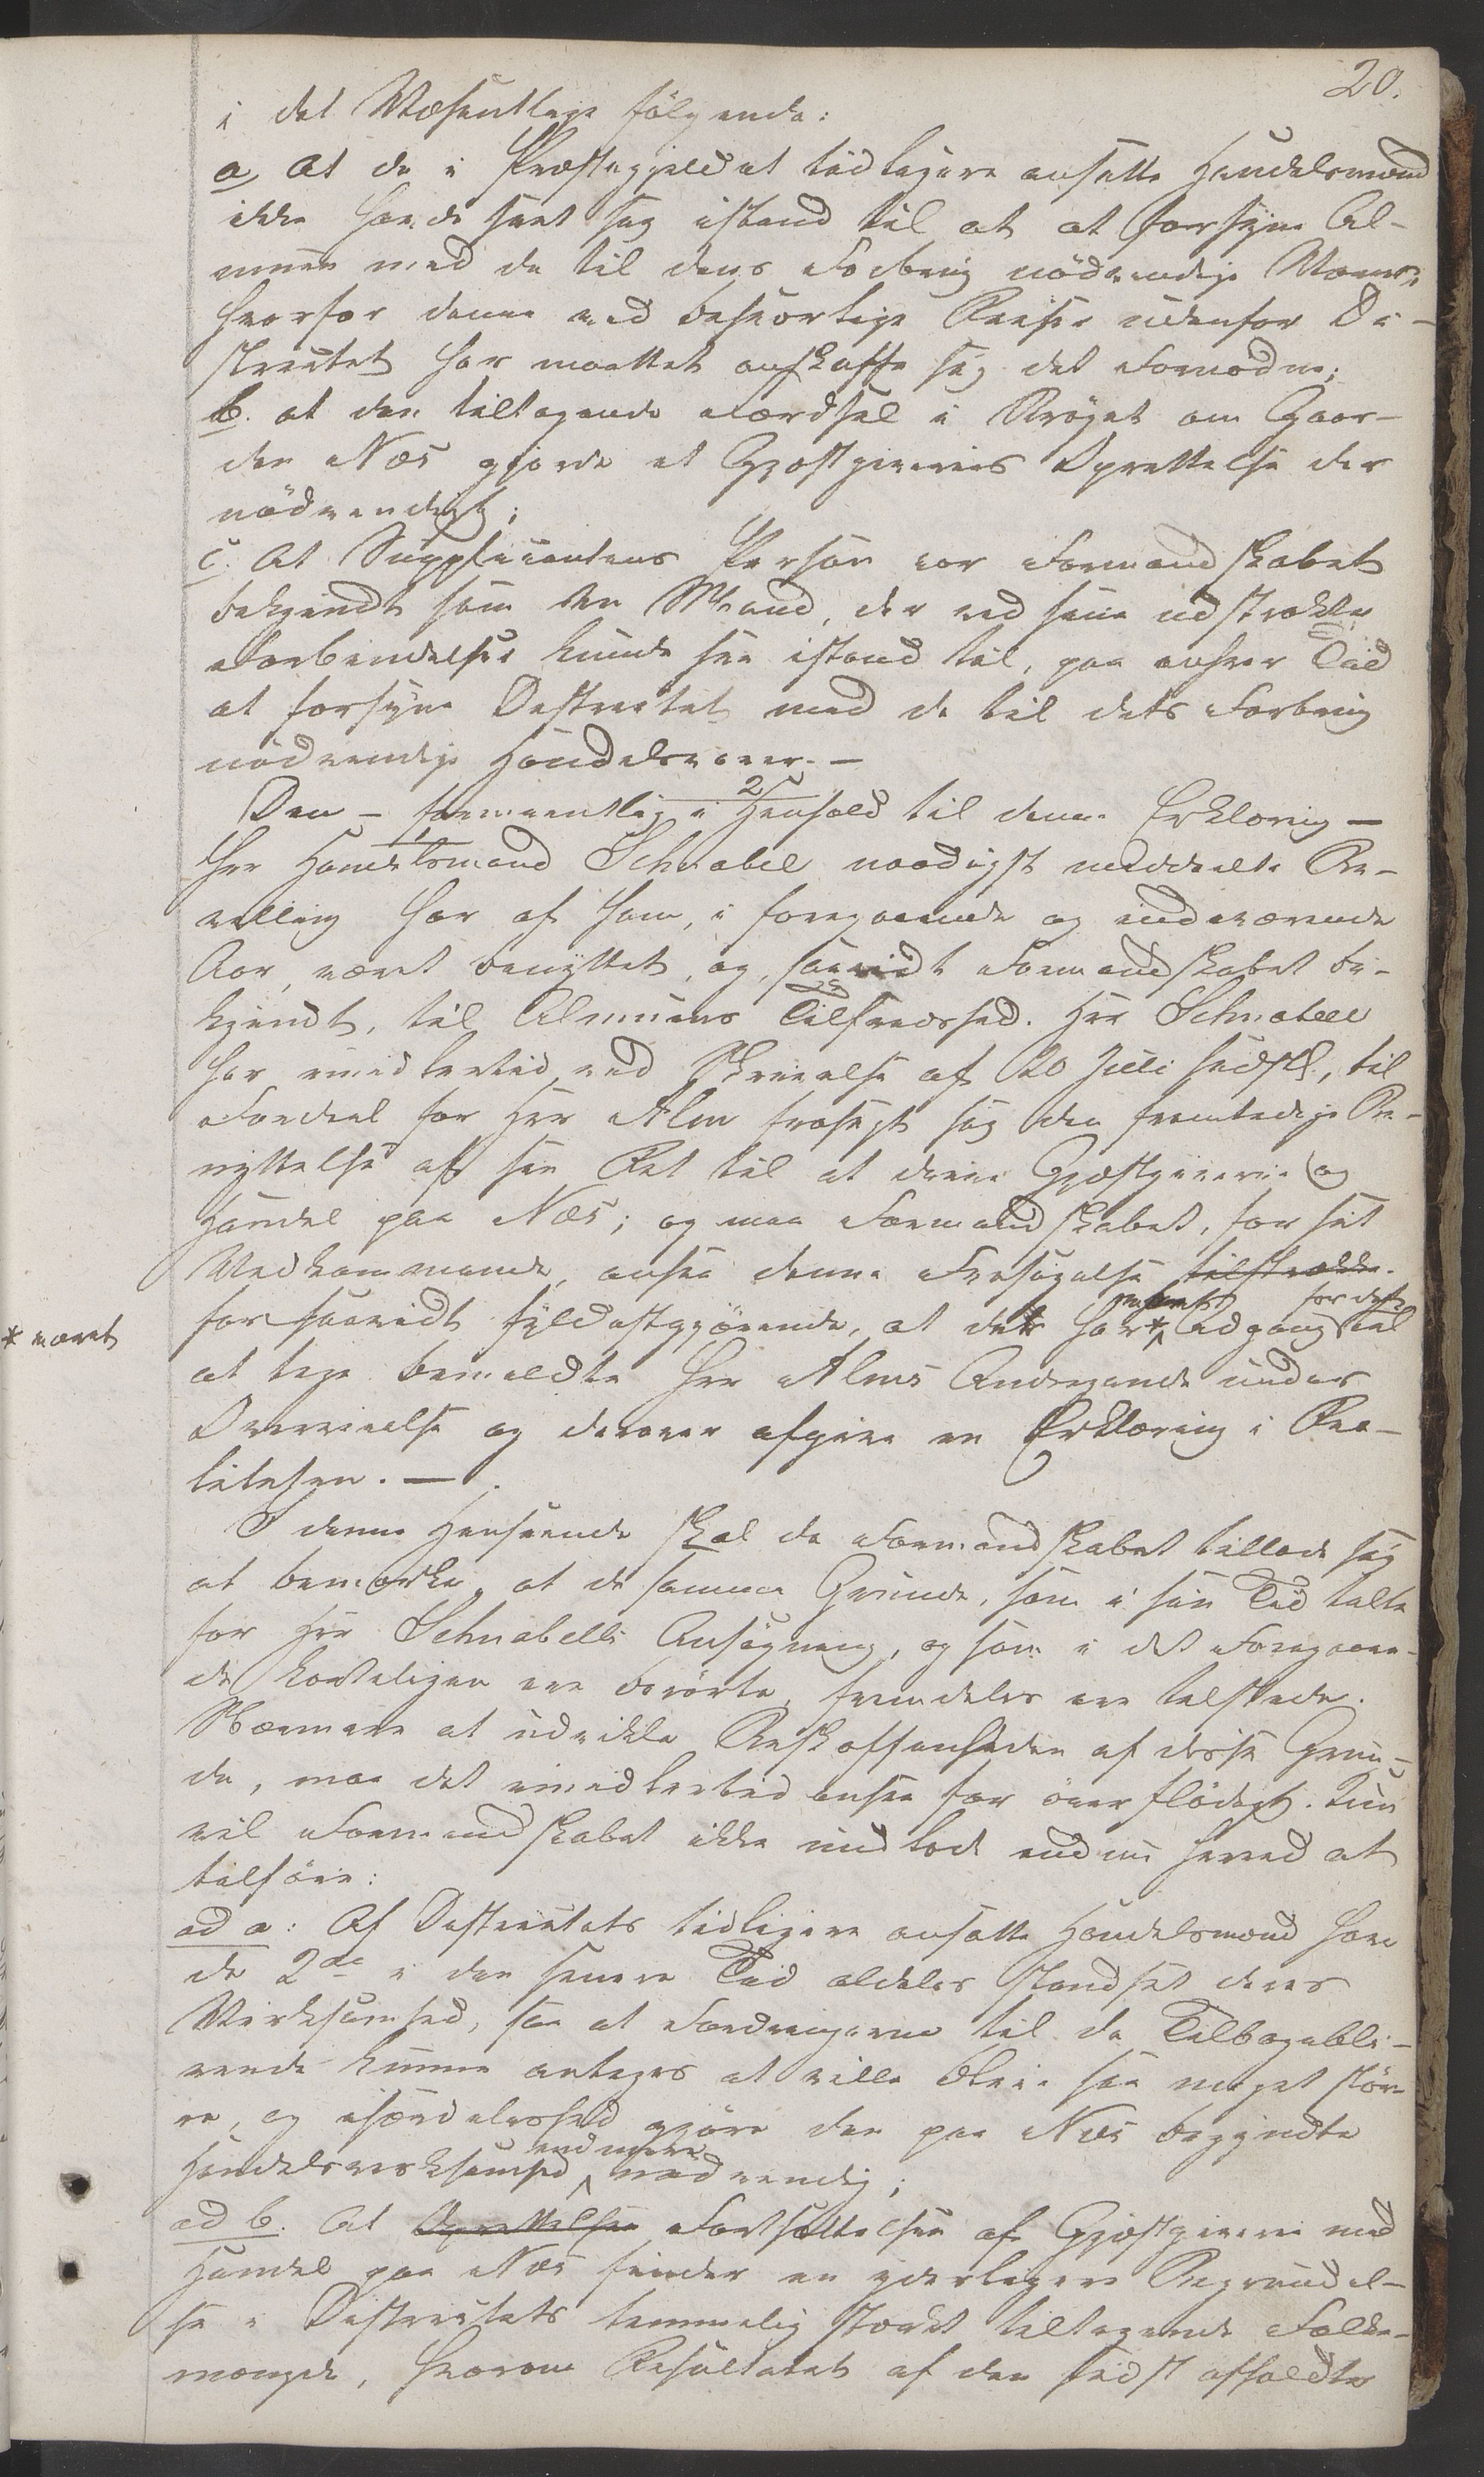 20.
i det Væsentlige følgende:
a, at de i Præstegjeldet tidligere ansatte Handelsmænd
ikke havde seet sig istand til at at forsyne Al-
muen med de til dens Forbrug nödvendige Varer,
hvorfor denne ved besværlige Reiser udenfor Di-
strictet har maattet anskaffe sig det Fornødne;
b. at den tiltagende Færdsel i Strøget om Gaar-
den Næs gjorde et Gjæstgiveries Oprettelse der
nödvendigt;
c. At Supplicantens Person var Formandskabet
bekjendt som en Mand, der ved sine udstrakte
Forbindelser kunde see istand til, paa enhver Tid
at forsyne Districtet med de til dets Forbrug
nödvendige Handelsvarer. —
Den – formeentlig i Henhold til denne Erklæring —
Hr Handelsmand Schnabel naadigst meddeelte Be-
villing har af ham, i foregaaende og indeværende
Aar, været benyttet, og, saavidt Formandskabet be-
kjendt, til Almuens Tilfredshed. Herr Schnabell
har imidlertid ved Skrivelse af 20 Juli sidstl, til
Fordeel for Herr Alm frasagt sig den fremtidige Be-
nyttelse af sin Ret til at drive Gjæstgiverie og
Handel paa Næs; og maa Formandskabet, for sit
Vedkommende, ansee denne Frasigelse tilstrække-
for dets
forsaavidt fyldestgjörende, at der har * Adgang til
* været
at tage bemeldte Herr Alms Andragende under
Overveielse og derover afgive en Erklæring i Rea-
liteten. —
I denne Henseende skal da Formandskabet tillade sig
at bemærke, at de samme Grunde, som i sin Tid talte
for Herr Schnabells Ansøgning, og som i det Foregaaen-
de korteligen ere berörte, fremdeles ere tilstede.
Nærmere at udvikle Beskaffenheden af disse Grun-
de, maa det imidlertid ansee for overflödigt. Kun
vil Formandskabet ikke undlade endnu herved at
tilföie:
ad a: Af Districtets tidligere ansatte Handelsmænd have
de 2de i den senere Tid aldeles standset deres
Virksomhed, saa at Fordringerne til de Tilbagebli-
vende kunne antages at ville blive saa meget stör-
re, og isærdeleshed gjöre den paa Næs begyndte
end mere
Handelsvirksomhed nødvendig;
ad b. At Oprettelsen Fortsættelsen af Gjæstgiverie med
Handel paa Næs finder en yderligere Begrundel-
se i Districtets temmelig stærkt tiltagende Folke-
mængde, hvorom Resultatet af den sidst afholdte